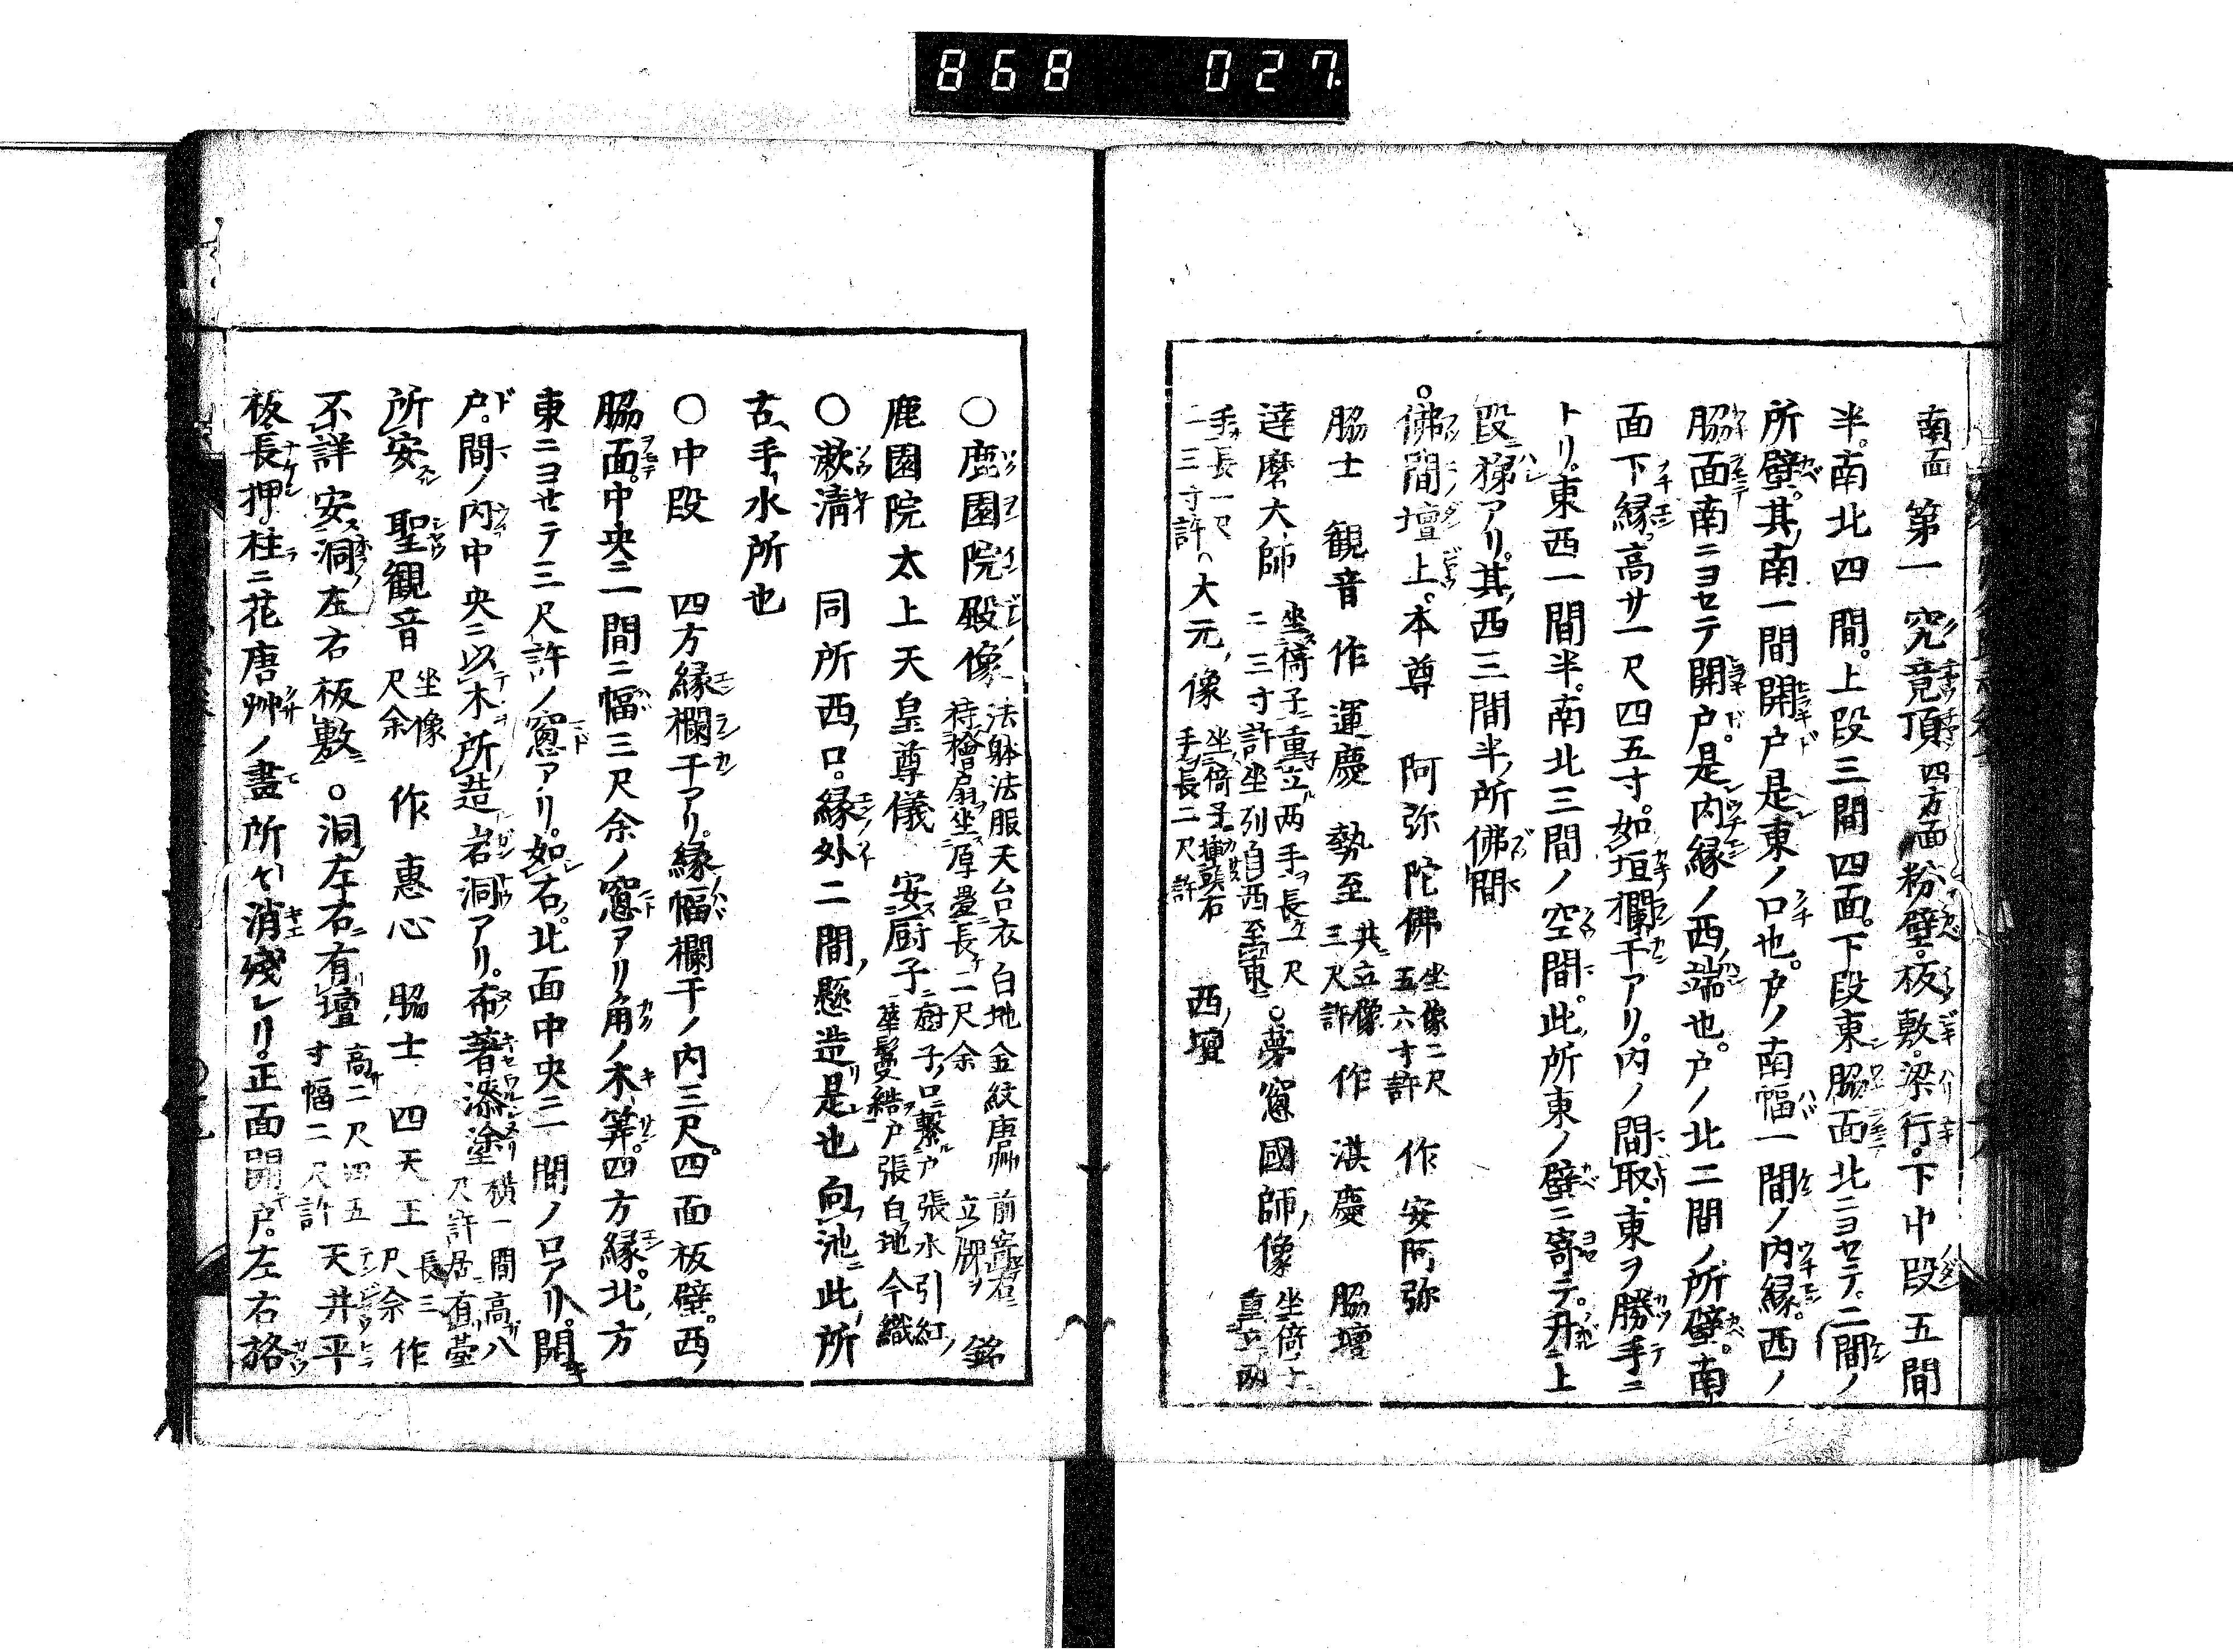 868 027
南面 第一 究竟頂 四方面 粉壁。板敷。梁行。下中段五間
半。南北四間。上段三間四面。下段東脇面北ニヨセテ。二間ノ
所壁。其南一間開戸是東ノ口也。戸ノ南幅一間ノ内縁。西ノ
脇面南ニヨセテ開戸。是内縁ノ西端也。戸ノ北二間ノ所壁。南
面下縁。高サ一尺四五寸。如垣欄干アリ。内ノ間取。東ヲ勝手ニ
トリ。東西一間半。南北三間ノ空間。此所東ノ壁ニ寄テ。升上
段梯アリ。其西三間半所佛間
佛間壇上。本尊 阿弥陀佛 坐像二尺五六寸許 作安阿弥
脇士 観音 作運慶 勢至 共立像三尺許 作湛慶 脇壇
達磨大師 坐倚子重立両手長一尺二三寸許坐列自西至東 ○夢窓國師像 坐倚子重立両
手長一尺二三寸許 大元像 坐倚子手長二尺許 西壇
○鹿園院殿像 法躰法服天台衣白地金紋唐艸前 持檜扇坐厚疊長二尺余 立牌 銘
鹿園院太上天皇尊儀 安厨子 厨子口繋戸張水引紅 華鬘結戸張白地今織
○漱清 同所西口。縁外二間懸造是也向池此所
古手水所也
○中段 四方縁欄干アリ。縁幅欄干ノ内三尺。四面板壁。西ノ
脇面。中央ニ一間ニ幅三尺余ノ窓アリ角ノ木筭。四方縁。北方
東ニヨセテ三尺許ノ窓アリ。如右。北面中央二間ノ口アリ。開
戸。間ノ内中央ニ以木所造岩洞アリ。布著漆塗 横一間高八尺許居有臺
所安 聖観音 坐像尺余 作惠心 脇士 四天王 長三尺余 作
不詳 安洞左右板敷 ○洞左右有壇 高二尺四五寸幅二尺許 天井平
板長押柱ニ花唐艸ノ畫所々消殘レリ。正面開戸。左右格